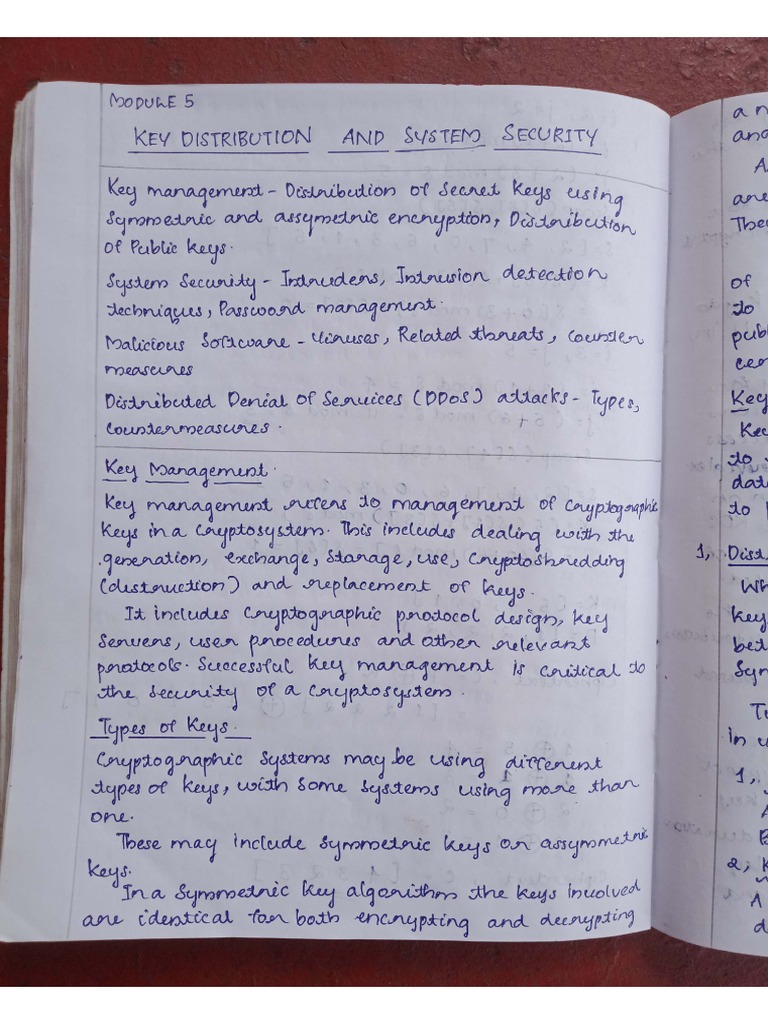 MODULE 5
KEY DISTRIBUTION AND SYSTEM SECURITY
Key management - Distribution of Secret Keys using
Symmetric and assymetric encryption, Distribution
of Public keys.
System Security - Intruders, Intrusion detection
techniques, Password management.
Malicious Software - Viruses, Related threats, Counter
measures
Distributed Denial of Services (DDoS) attacks - Types,
Countermeasures.
Key Management.
Key management refers to management of cryptographic
keys in a cryptosystem. This includes dealing with the
generation, exchange, storage, use, cryptoshredding
(destruction) and replacement of keys.
It includes cryptographic protocol design, key
servers, user procedures and other relevant
protocols. Successful key management is critical to
the security of a cryptosystem.
Types of Keys.
Cryptographic systems may be using different
types of keys, with some systems using more than
one.
These may include symmetric keys or assymmetric
keys.
In a symmetric key algorithm the keys involved
are identical for both encrypting and decrypting
an
are
of
to
Key
to
1,
key
in u
1,
2,
A